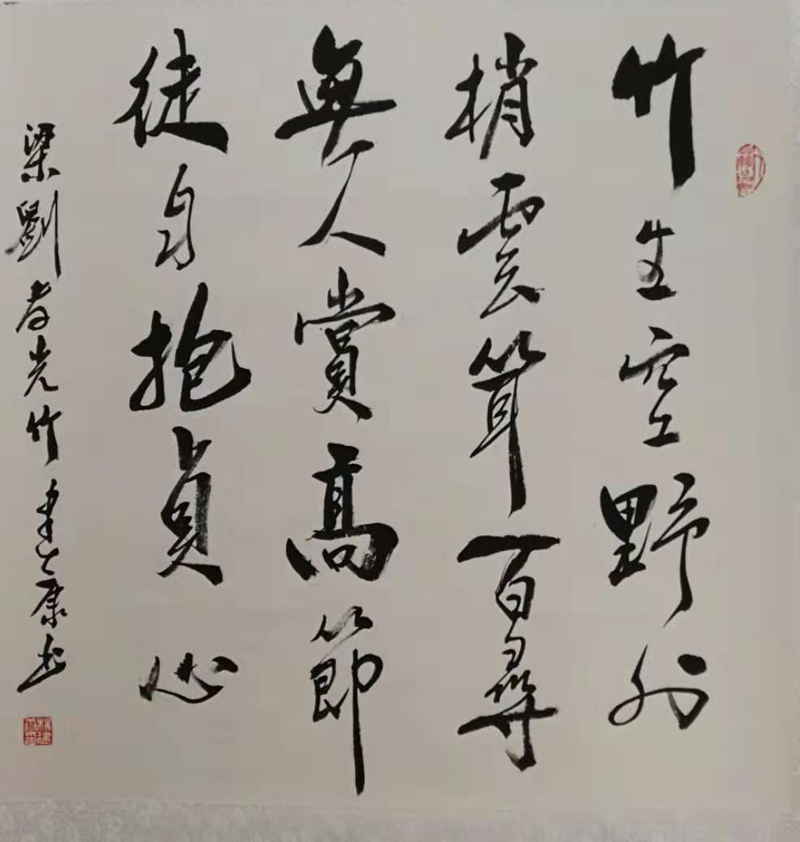 竹生空野外
梢雲耸百尋
無人賞髙節
徒自抱貞心
梁劉孝先竹 康书